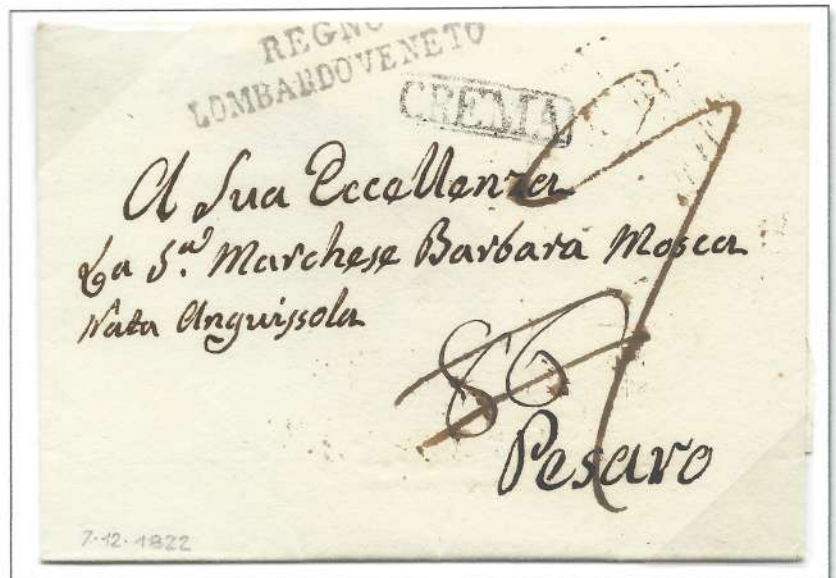 REGNO
LOMBARDOVENETO
CREMA
A Sua Eccellenza
La S.ra Marchese Barbara Mosca
Nata Anguissola
86
Pesaro
7-12-1822